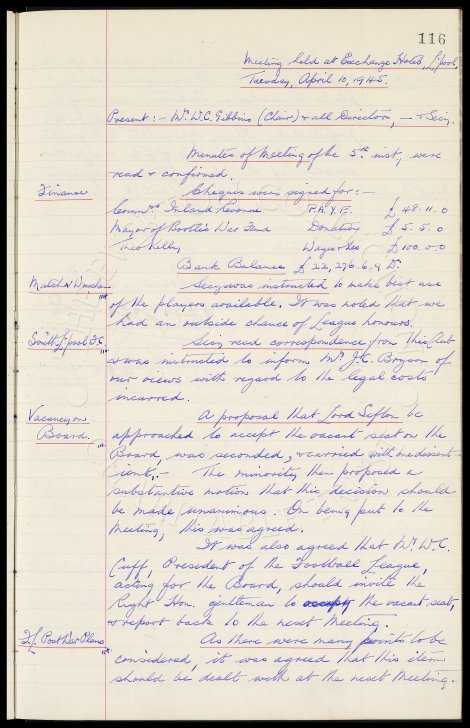 116
Meeting held at Exchange Hotel, L'pool,
Tuesday, April 10, 1945.
Present :- Mr. W.C. Gibbins (Chair) & all Directors, — & Secy.
Minutes of Meeting of the 5th inst, were
read & confirmed.
Finance
Cheques were signed for :-
Commrs Inland Revenue P.A.Y.E. £ 48.11.0
Mayor of Bootle's War Fund Donation £ 5.5.0
Theo Kelly Wages etc £100.0.0
Bank Balance £22,276.6.9
Match v Wrexham
Secy was instructed to make best use
of the players available. It was noted that we
had an outside chance of League honours.
South L'pool F.C.
Secy read correspondence from this Club
& was instructed to inform Mr. J.C. Bryson of
our views with regard to the legal costs
incurred.
Vacancy on
Board.
A proposal that Lord Sefton be
approached to accept the vacant seat on the
Board, was seconded, & carried with one dissent-
ient. - The minority then proposed a
substantive motion that this decision should
be made unanimous. On being put to the
Meeting, this was agreed.
It was also agreed that Mr. W.C.
Cuff, President of the Football League,
acting for the Board, should invite the
Right Hon. gentleman to occupy the vacant seat,
& report back to the next Meeting.
F/L Post War Plans
As there were many points to be
considered, it was agreed that this item
should be dealt with at the next Meeting.